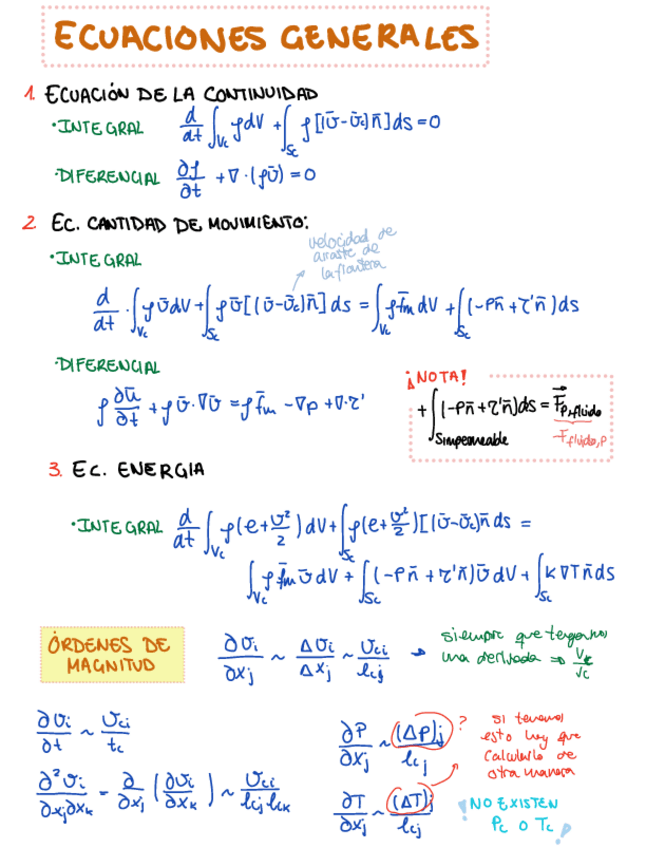 ECUACIONES GENERALES
1. ECUACIÓN DE LA CONTINUIDAD
·INTEGRAL d/dt ∫_Vc ρdV + ∫_Sc ρ[(v̄-v̄c)n̄]ds = 0
·DIFERENCIAL ∂ρ/∂t + ∇·(ρv̄) = 0
2. EC. CANTIDAD DE MOVIMIENTO:
·INTEGRAL
velocidad de
arraste de
la frontera
d/dt · ∫_Vc ρv̄dV + ∫_Sc ρv̄[(v̄-v̄c)n̄]ds = ∫_Vc ρf̄m dV + ∫_Sc (-Pn̄+τ'n̄)ds
·DIFERENCIAL
ρ ∂ū/∂t + ρv̄·∇v̄ = ρf̄m - ∇p + ∇·τ'
¡NOTA!
+ ∫_Simpermeable (-Pn̄+τ'n̄)ds = F_p,fluido
-F_fluido,p
3. EC. ENERGIA
·INTEGRAL d/dt ∫_Vc ρ(e+v²/2)dV + ∫_Sc ρ(e+v²/2)[(v̄-v̄c)n̄ds =
∫_Vc ρf̄m v̄dV + ∫_Sc (-Pn̄+τ'n̄)v̄dV + ∫_Sc K∇Tn̄ds
ÓRDENES DE
MAGNITUD
∂vi/∂xj ~ Δvi/Δxj ~ vci/lcj →
siempre que tengamos
una derivada ⇒
∂vi/∂t ~ vci/tc
∂²vi/∂xj∂xk = ∂/∂xj (∂vi/∂xk) ~ vci/lcj lck
∂P/∂xj ~ (ΔP)j/lcj ?
∂T/∂xj ~ (ΔT)j/lcj
si tenemos
esto hay que
calcularlo de
otra manera
¡NO EXISTEN
Pc O Tc!